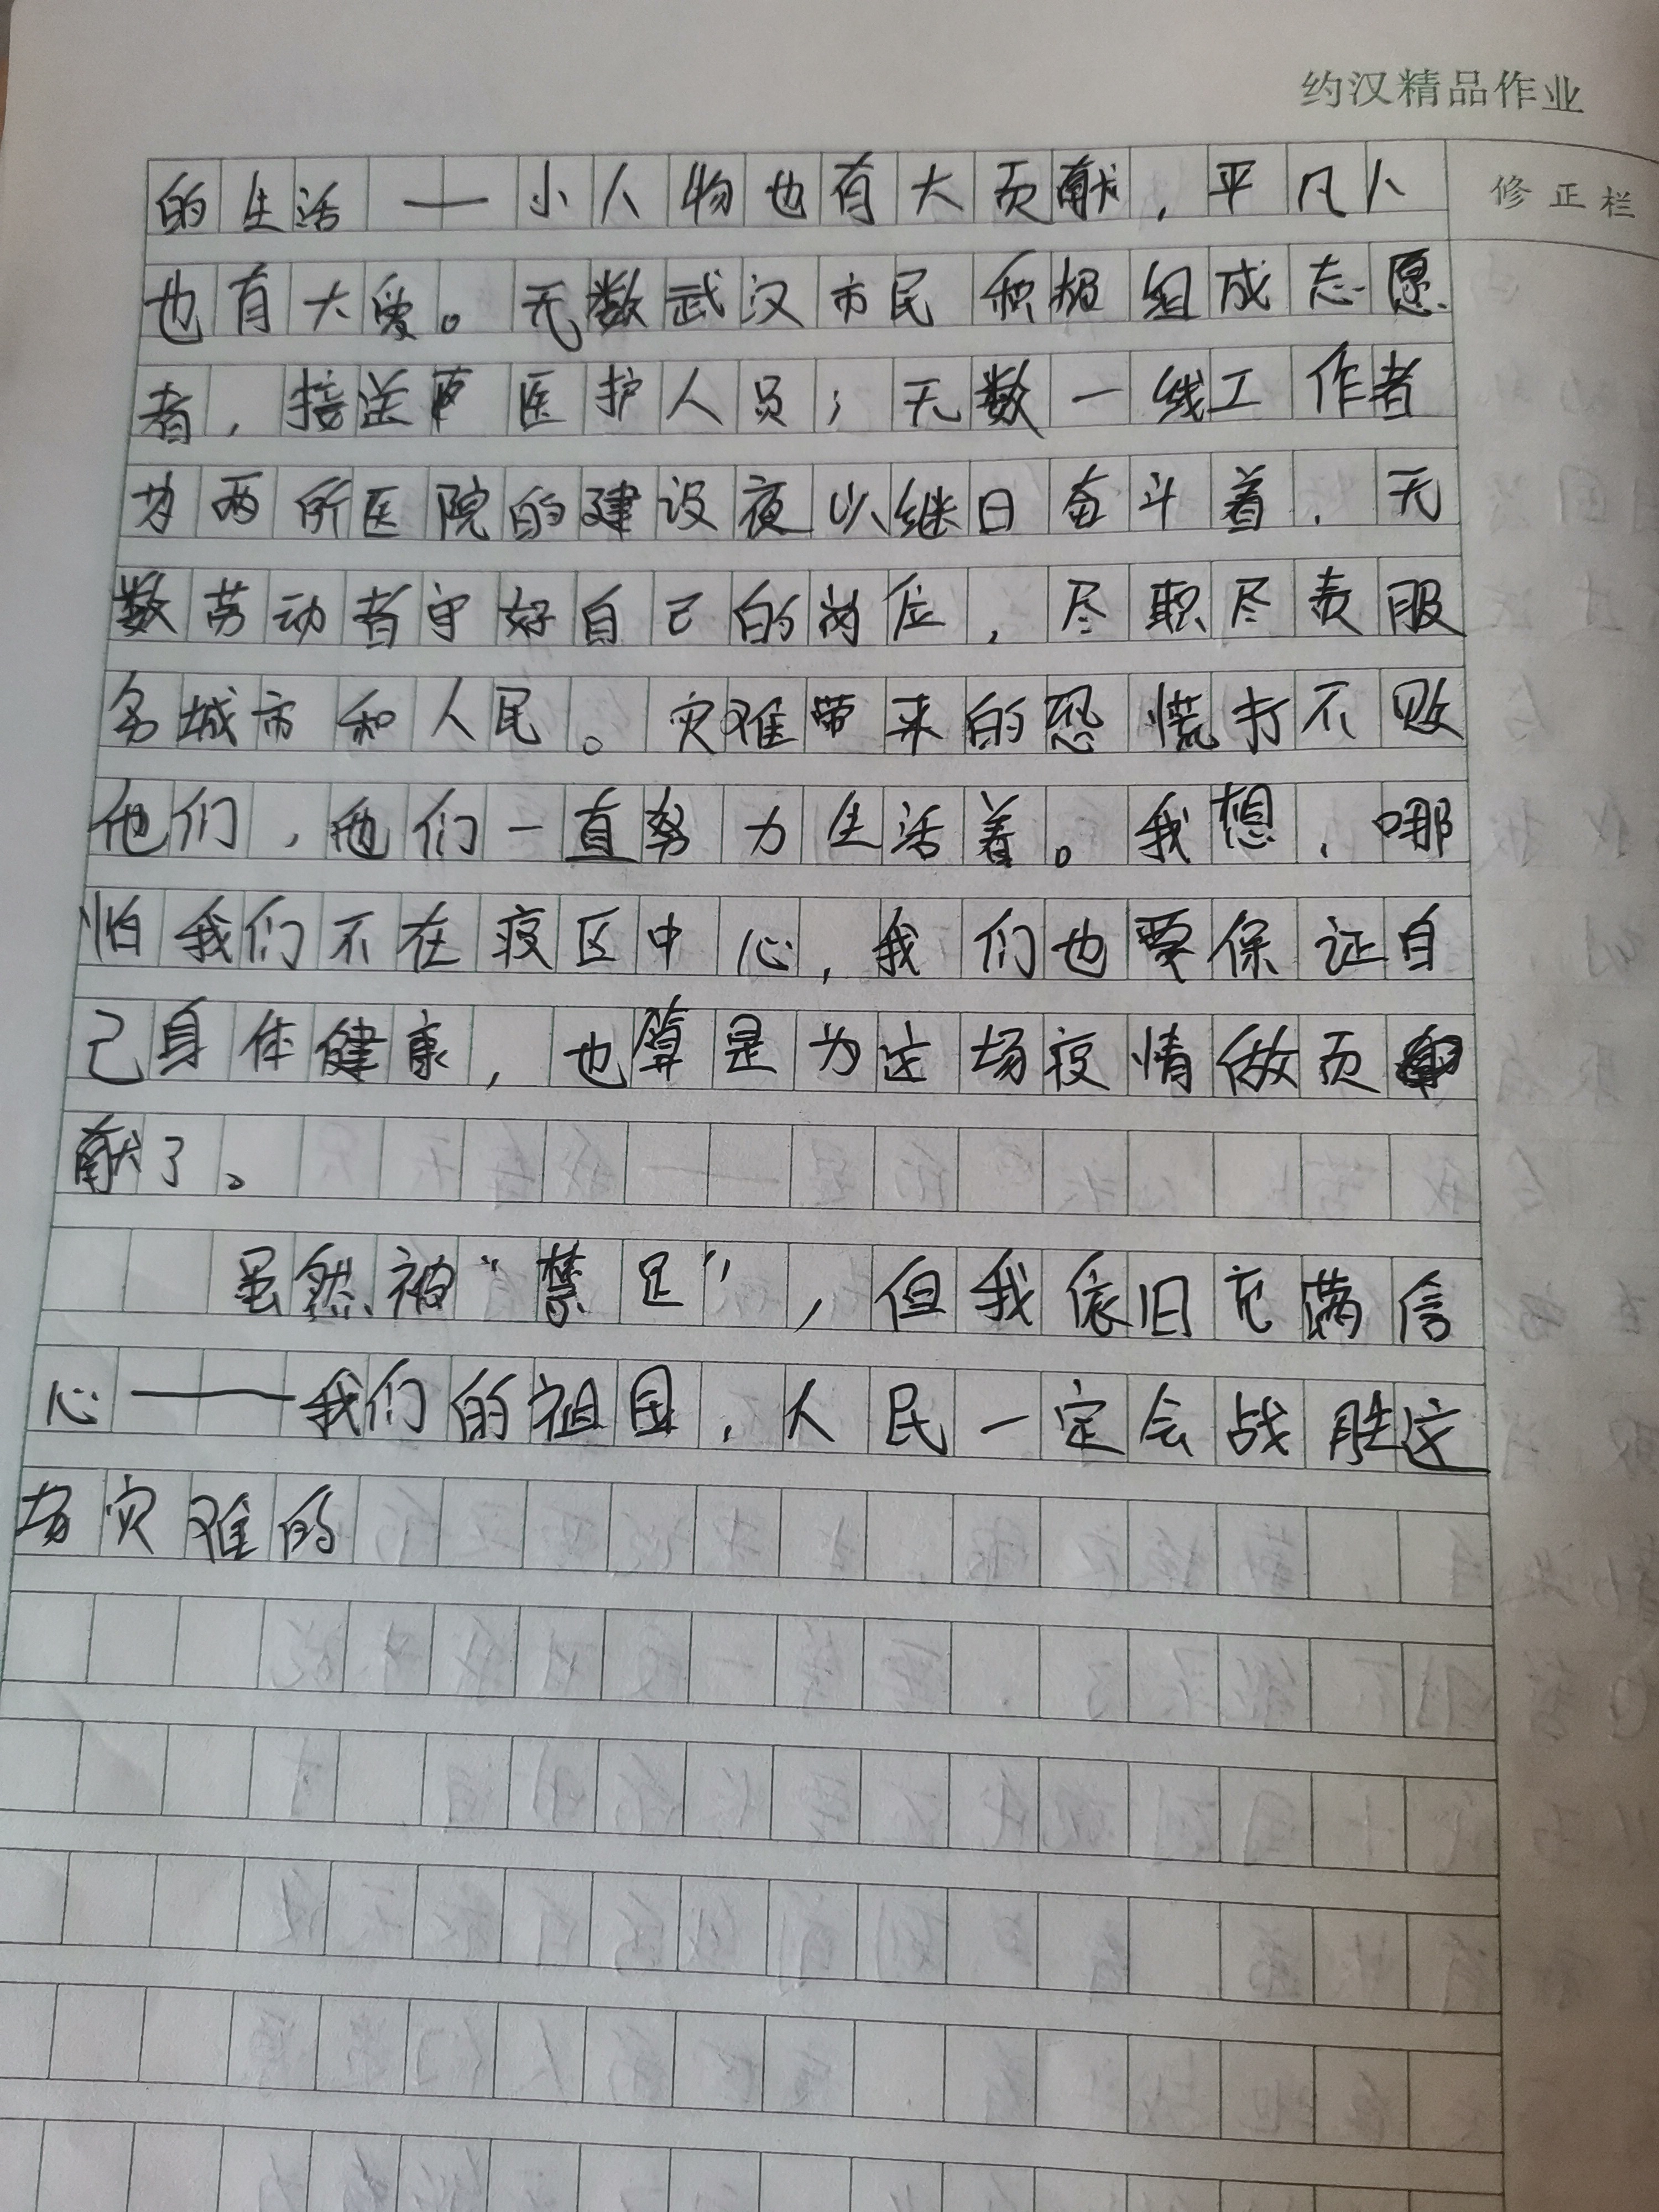 约汉精品作业
修正栏
的生活——小人物也有大贡献，平凡人
也有大爱。无数武汉市民积极组成志愿
者，接送医护人员；无数一线工作者
为两所医院的建设夜以继日奋斗着，无
数劳动者守好自己的岗位，尽职尽责服
务城市和人民。灾难带来的恐慌打不败
他们，他们一直努力生活着。我想，哪
怕我们不在疫区中心，我们也要保证自
己身体健康，也算是为这场疫情做贡
献了。
虽然被“禁足”，但我依旧充满信
心——我们的祖国，人民一定会战胜这
场灾难的